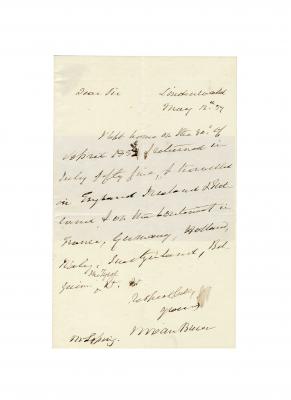 Dear Sir Lindenwald
May 12th 57
I left home on the 30th of
April 1853 & returned in
July fifty five, & travelled
in England Ireland & Scot
land & on the Continent in
France, Germany, Holland,
Italy, Switzerland, Bel
gium the Tyrol &c. &c
Respectfully
yours
M Van Buren
Mr